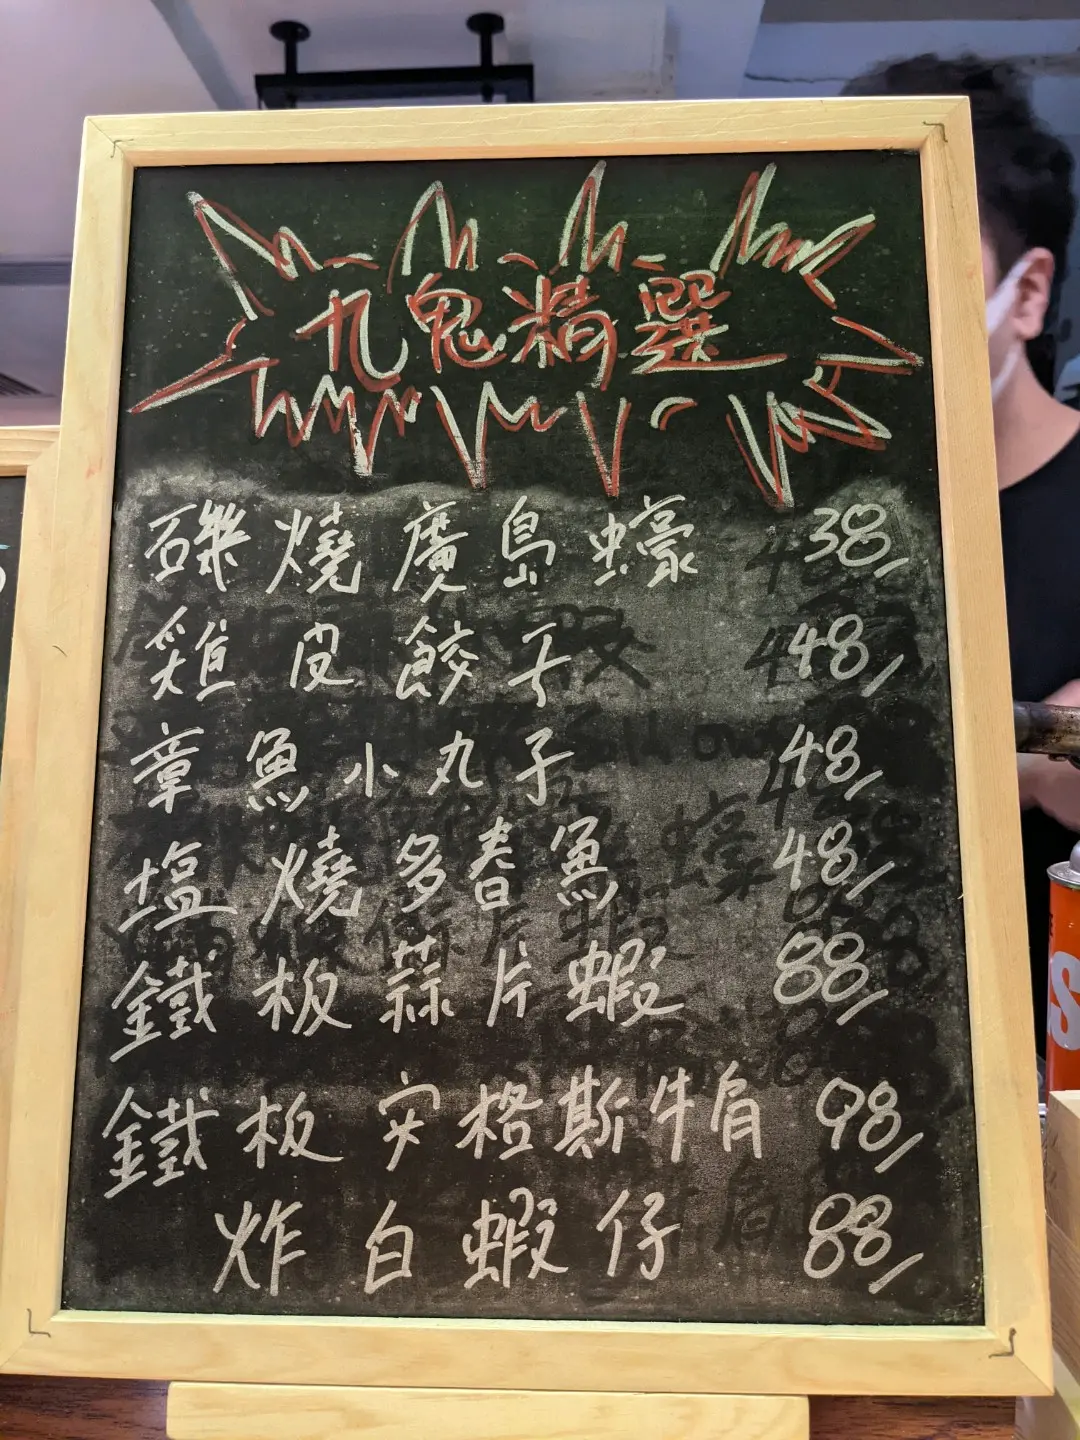 九鬼精選
磯燒廣島蠔 38/
雞皮餃子 48/
章魚小丸子 48/
塩燒多春魚 48/
鐵板蒜片蝦 88/
鐵板安格斯牛肩 98/
炸白蝦仔 88/
S